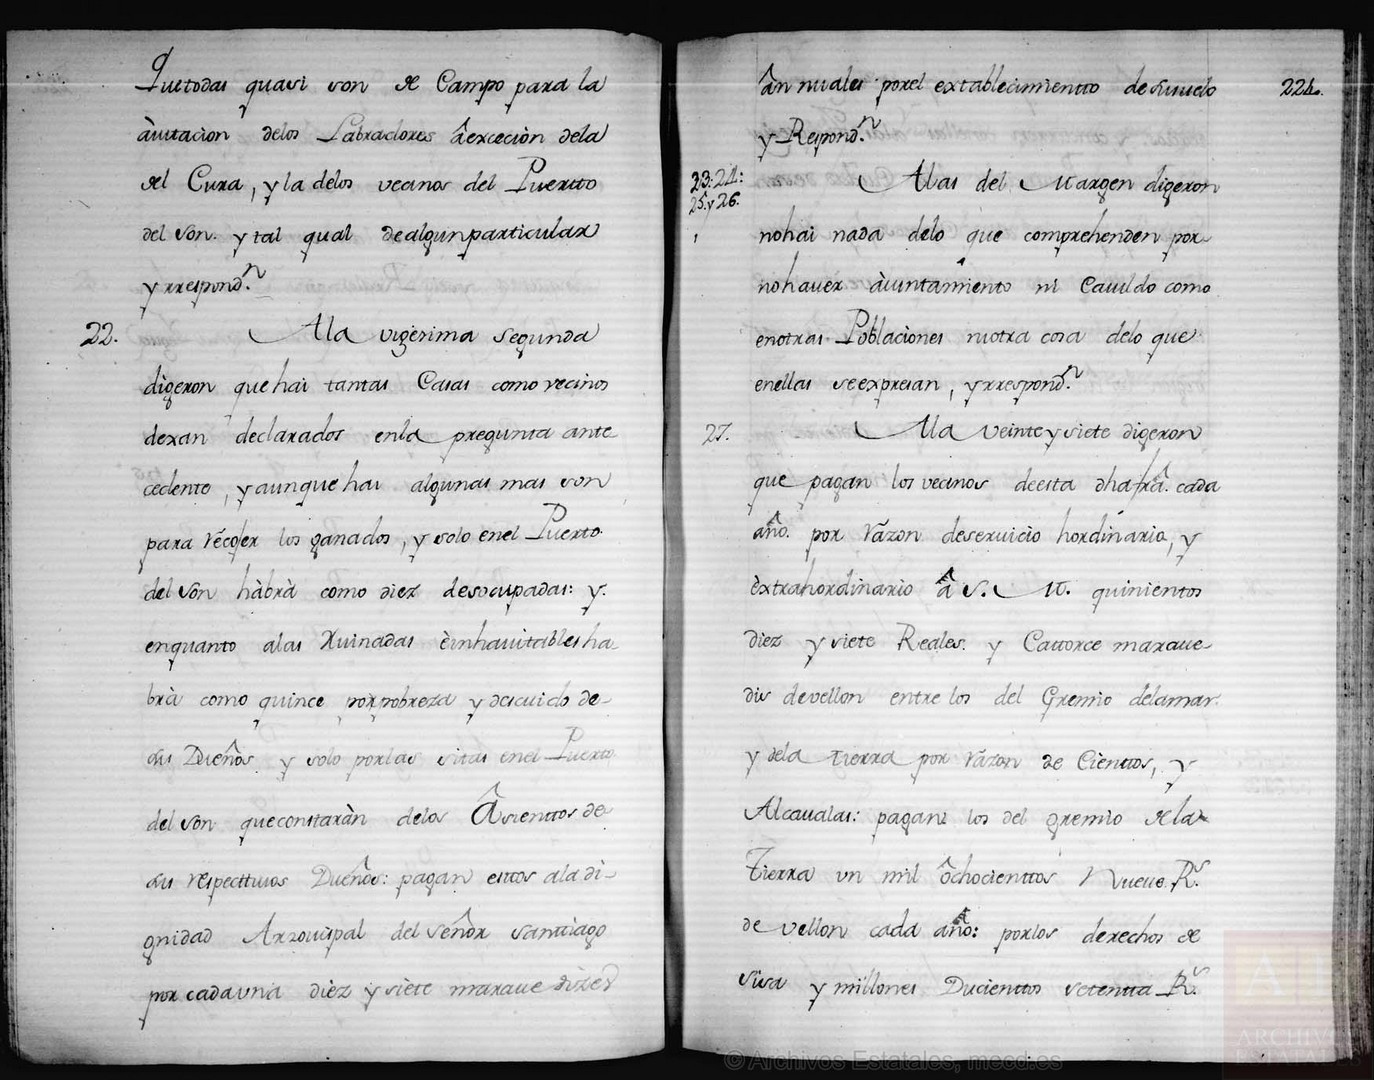 Quetodas quasi son de Campo para la
àuitaciòn delos Labradores âexceciòn dela
del Cura, y la delos vecinos del Puertto
del son. y tal qual dealgun particular
y rrespondn.
22. Ala vigèsima segunda
digeron que hai tantas Casas como vecinos
dexan declarados enla pregunta ante
cedente, y aunque hai algunas mas son
para rêcoger los ganados, y solo enel Puerto
del son hàbrà como diez desocupadas: y
enquanto alas Ruinadas èinhauitables ha
brà como quince por pobreza y descuido de-
sus Dueños y solo por las sitas enel Puerto
del son que constaràn delos Âsienttos de
sus respecttiuos Dueños: pagan esttos ala di-
gnidad Arzouispal del señor santtiago
por cada vna dièz y siète maraue dises
ânnuales por el extablecimientto de su suelo
224.
y Respondn.
23: 24: 25: y 26.
Alas del Margen digeron
no hai nada delo que comprehenden por-
no hauer àiuntamiento ni Cauildo como
enotras Poblaciones ni otra cosa delo que
enellas se expresan, y rrespondn.
27. Ala veinte y siete digeron
que pagan los vecinos deesta dha frâ. cada
año. por razon deseruicio hordinario, y
èxtrahordinario â S. M. quinientos
dièz y siete Reales. y Cattorce maraue-
dis de vellon entre los del Gremio dela mar
y dela tierra por razon de Cienttos, y
Alcaualas: pagans los del gremio dela
Tierra vn mil ôchocienttos Nueue Rs.
de vellon cada año: por los derechos de
Sisa y millones Ducienttos setentta Rs.
© Archivos Estatales, mecd.es
ARCHIVOS
ESTATALES